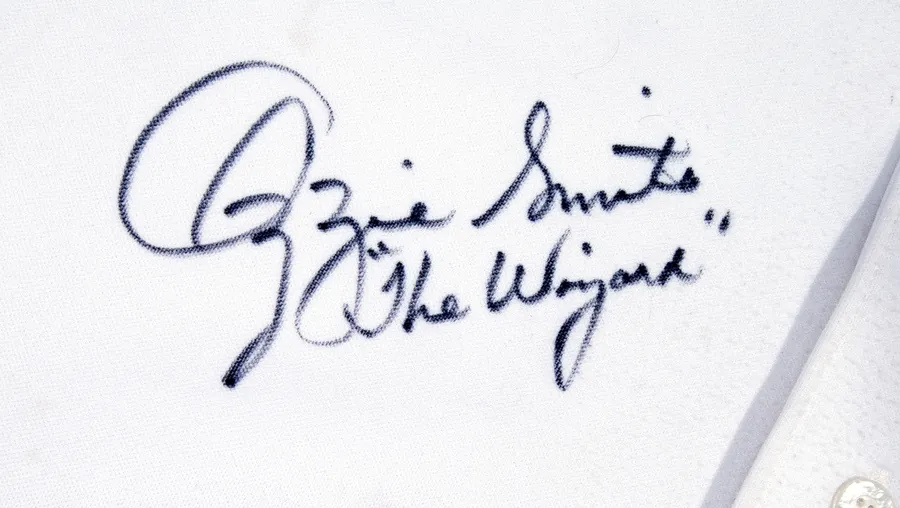 Ozzie Smith
"The Wizard"